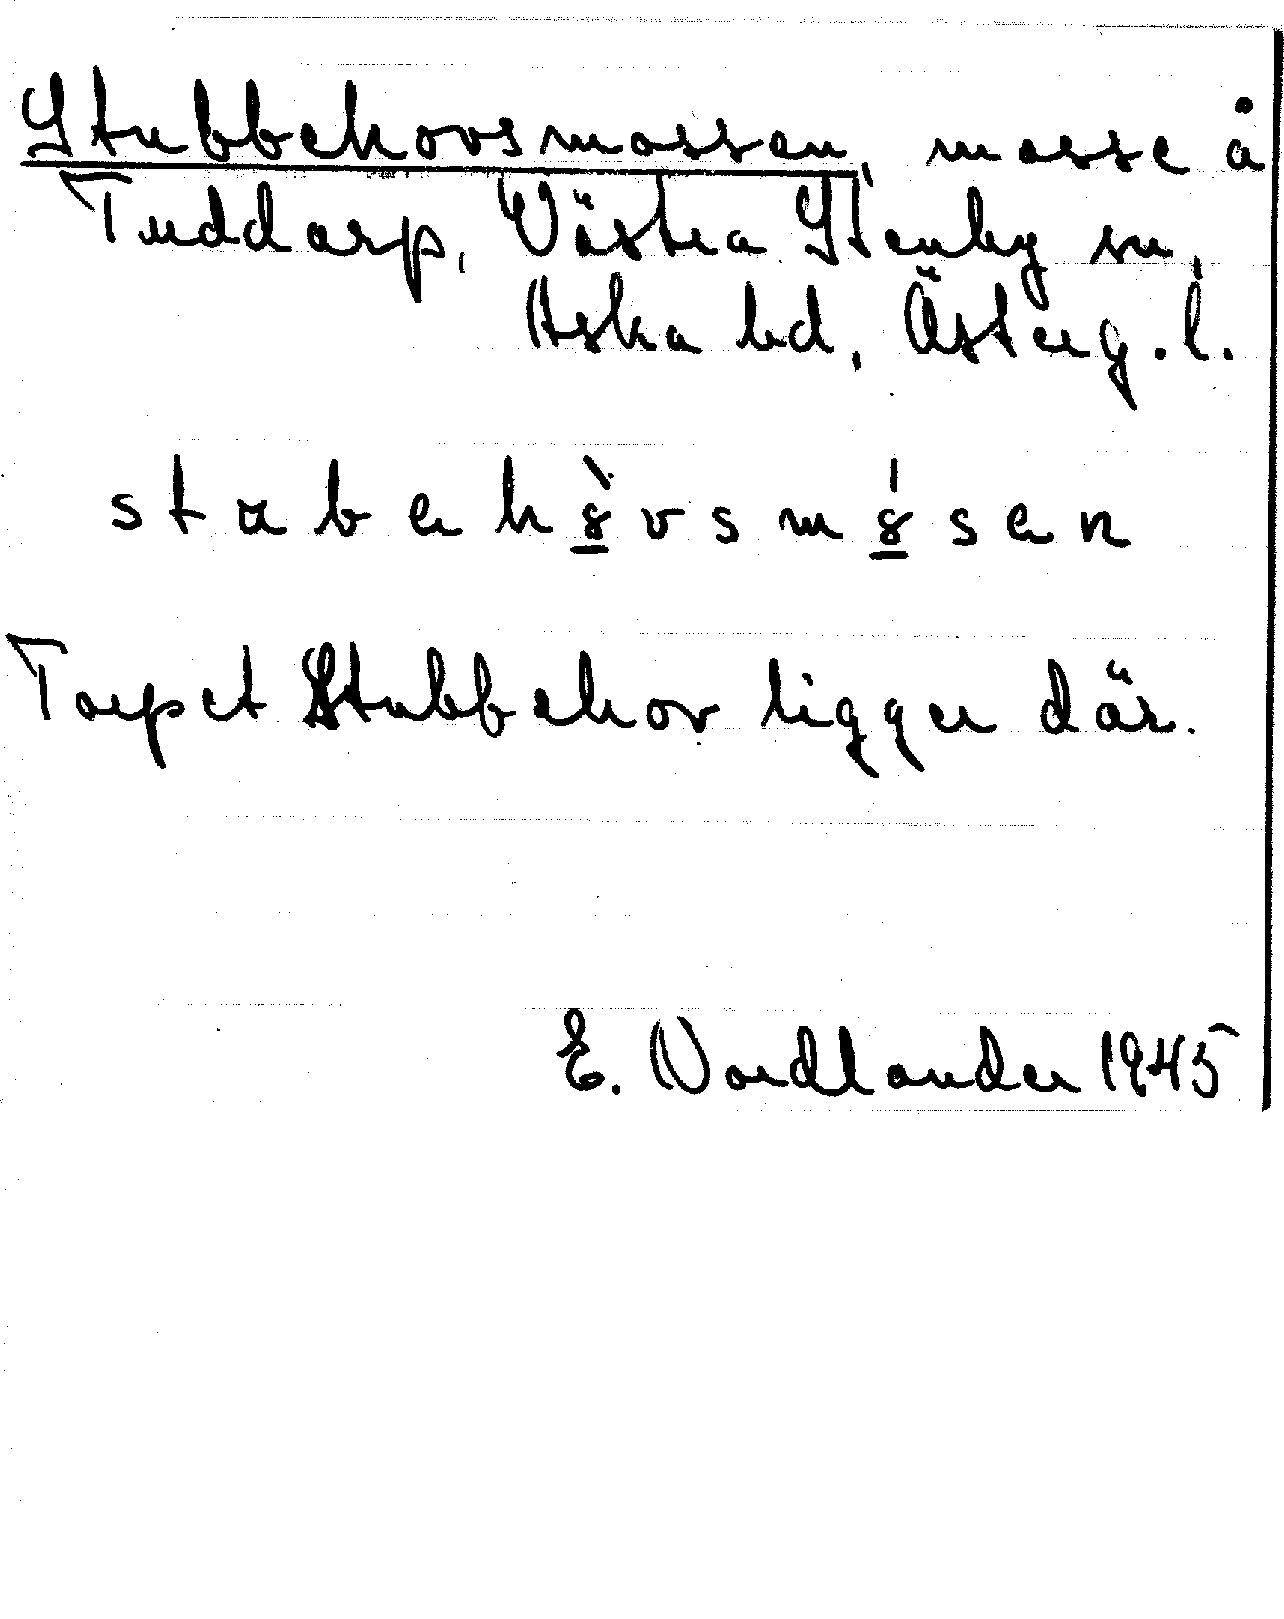 Stubbehovsmossen, mosse å
Tuddarp, Västra Stenby sn,
Aska hd, Österg. l.
stubehòvsmósen
Torpet Stubbehov ligger där.
E. Nordlander 1945